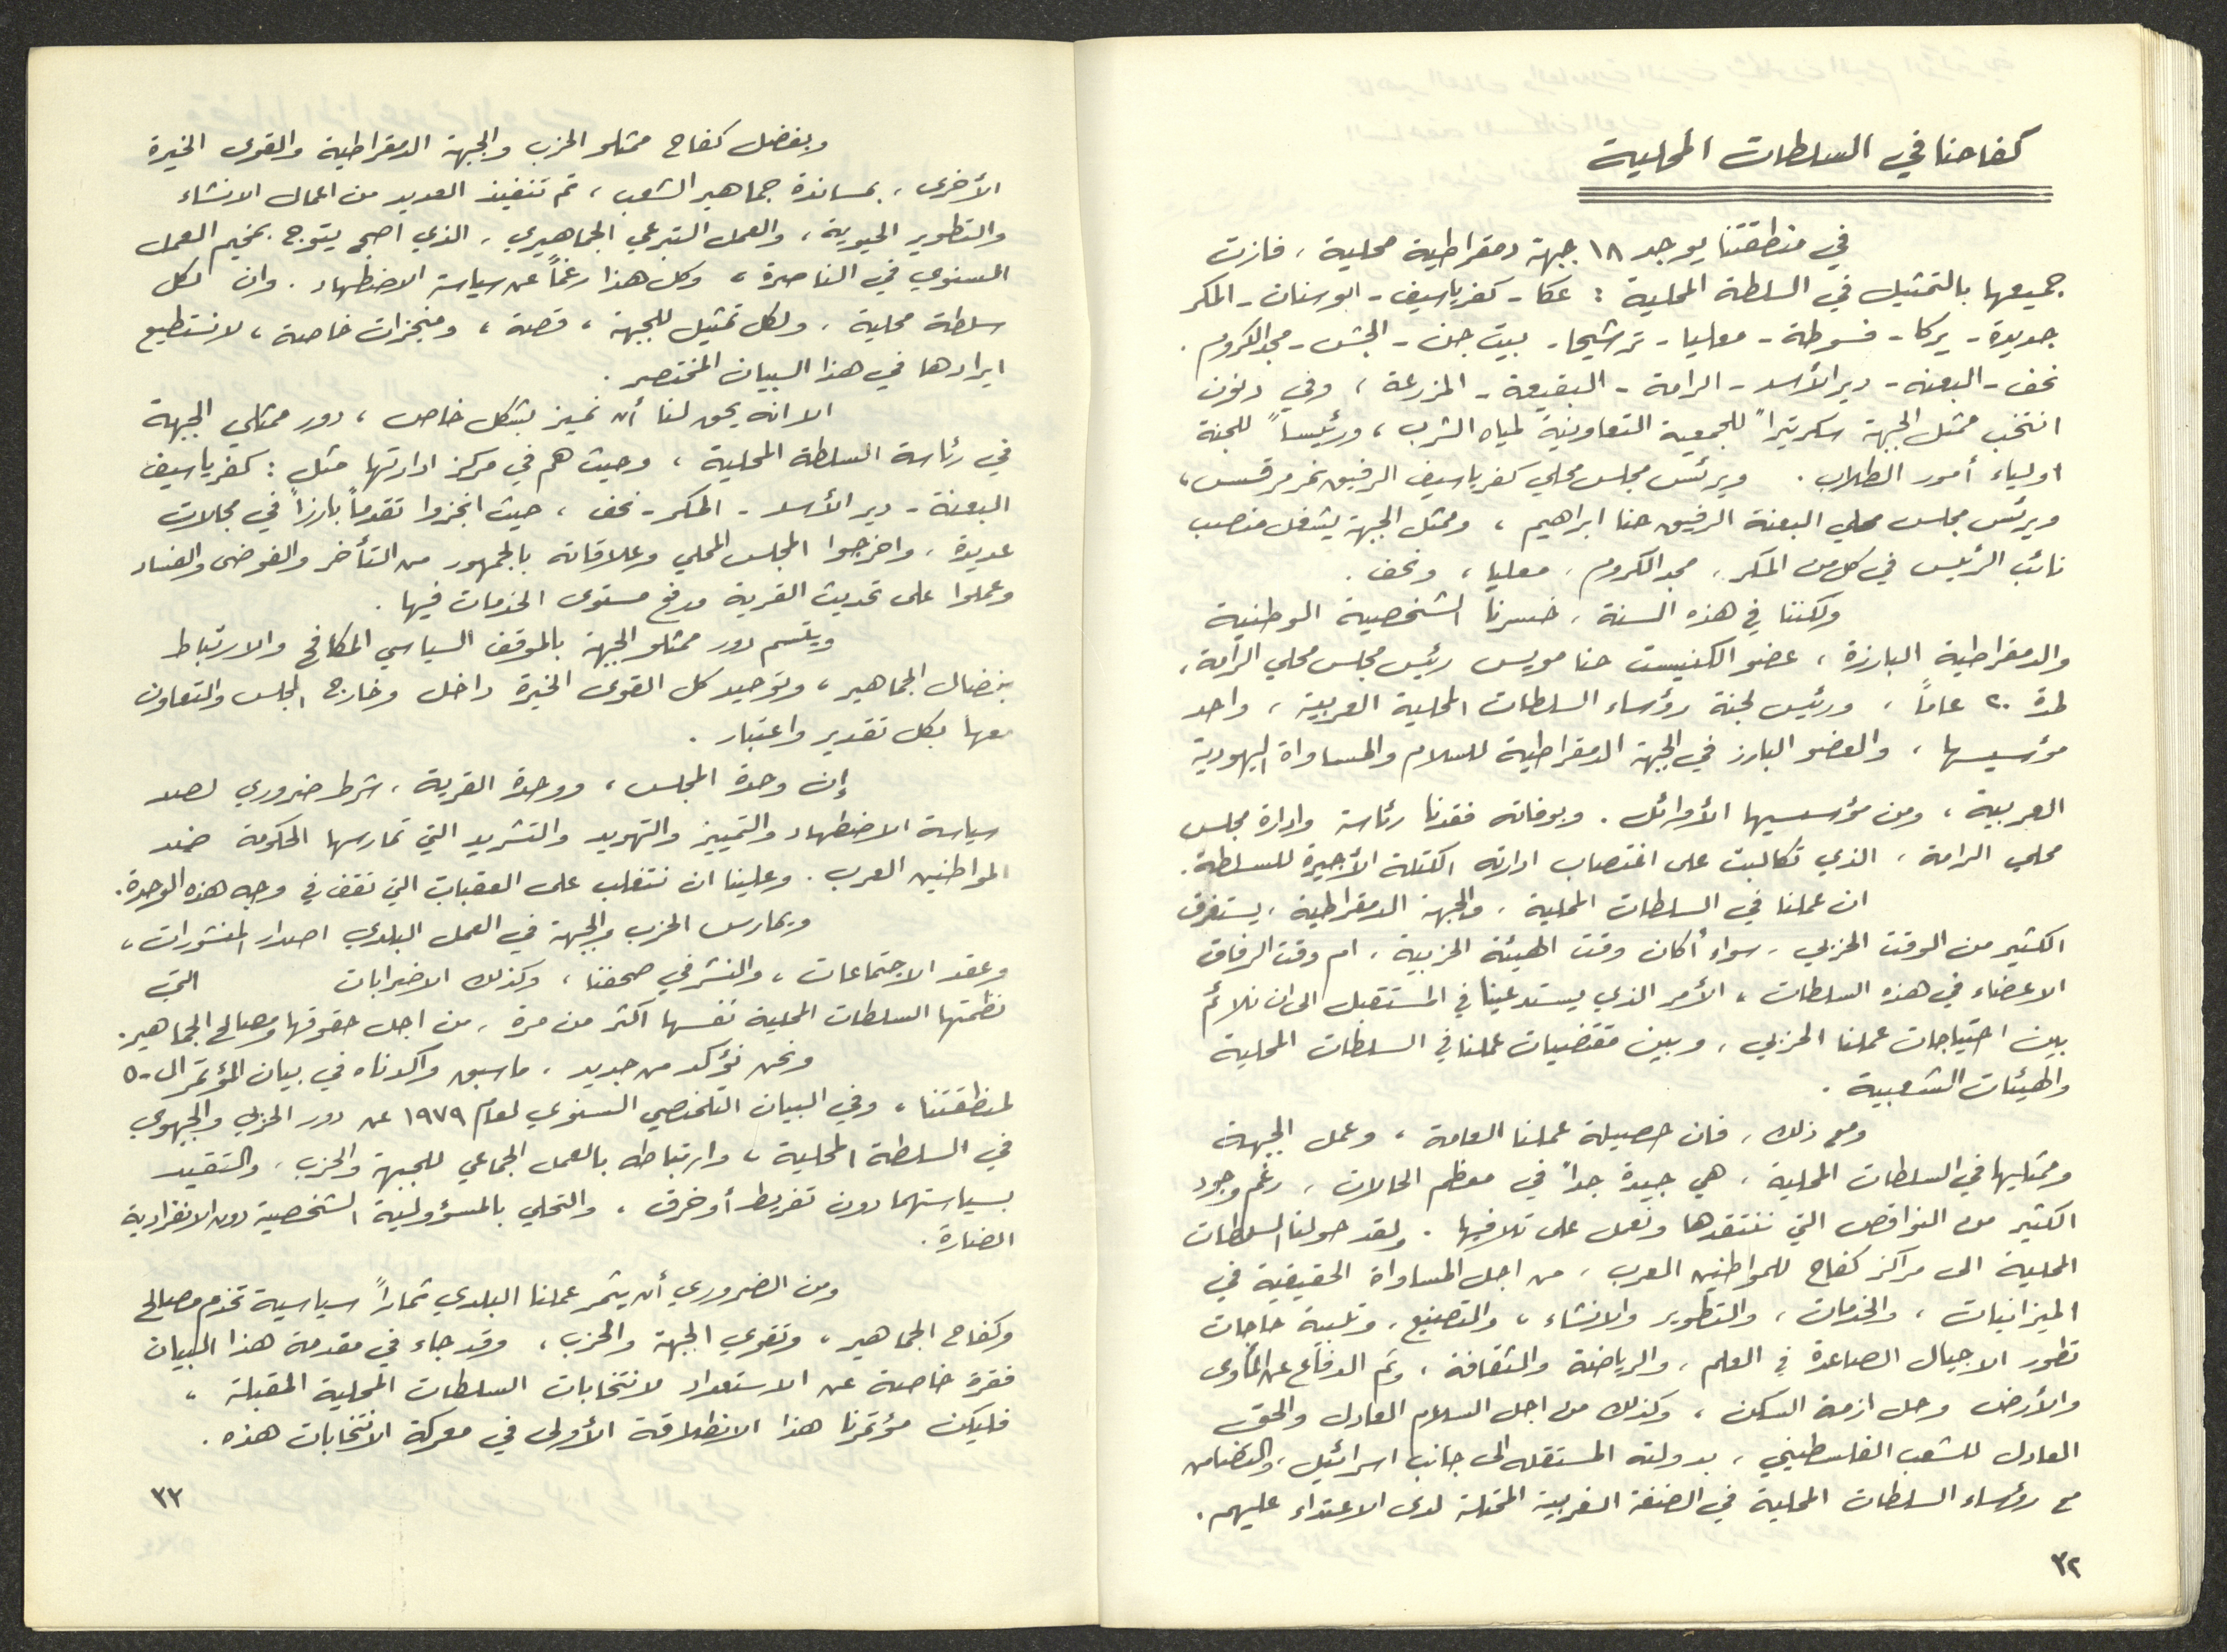 كفاحنا في السلطات المحلية
في منطقتنا يوجد ١٨ جبهة دمقراطية محلية، فازت
جميعها بالتمثيل في السلطة المحلية : عكا - كفرياسيف - ابوسنان - المكر
جديدة - يركا - فسوطة - معليا - ترشيحا - بيت جن - الجش - مجد الكروم.
نحف - البعنه - دير الأسد - الرامة - البقيعة - المزرعة ، وفي دنون
انتخب ممثل الجبهة سكرتيراً للجمعية التعاونية لمياه الشرب ، ورئيساً للجنة
اولياء أمور الطلاب. ويرئس مجلس محلي كفرياسيف الرفيق نمر مرقس،
ويرئس مجلس محلي البعنة الرفيق حنا ابراهيم ، وممثل الجبهة يشغل منصب
نائب الرئيس في كل من المكر، مجد الكروم، معليا ، ونحف.
ولكننا في هذه السنة، خسرنا الشخصية الوطنية
والدمقراطية البارزة ، عضو الكنيست حنا مويس رئيس مجلس محلي الرامة،
لمدة ٢٠ عاماً ، ورئيس لجنة رؤساء السلطات المحلية العربية ، واحد
مؤسسيها ، والعضو البارز في الجبهة الدمقراطية للسلام والمساواة اليهودية
العربية ، ومن مؤسسيها الأوائل. وبوفاته فقدنا رئاسة وادارة مجلس
محلي الرامة ، الذي تكالبت على اغتصاب ادارته الكتلة الأجيرة للسلطة.
ان عملنا في السلطات المحلية، والجبهة الدمقراطية، يستغرق
الكثير من الوقت الحزبي، سواء أكان وقت الهيئة الحزبية، ام وقت الرفاق
الاعضاء في هذه السلطات ، الأمر الذي يستدعينا في المستقبل الى ان نلائم
بين احتياجات عملنا الحزبي، وبين مقتضيات عملنا في السلطات المحلية
والهيئات الشعبية.
ومع ذلك، فان حصيلة عملنا العامة ، وعمل الجبهة
وممثليها في السلطات المحلية، هي جيدة جداً في معظم الحالات، رغم وجود
الكثير من النواقص التي ننتقدها ونعمل على تلافيها. ولقد حولنا السلطات
المحلية الى مراكز كفاح للمواطنين العرب، من اجل المساواة الحقيقية في
الميزانيات ، والخدمات ، والتطوير والانشاء ، والتصنيع، وتلبية حاجات
تطور الاجيال الصاعدة في العلم، والرياضة والثقافة ، وتم الدفاع عن المأوى
والأرض وحل ازمة السكن ، وكذلك من اجل السلام العادل والحق
العادل للشعب الفلسطيني، بدولته المستقله الى جانب اسرائيل، والتضامن
مع رؤساء السلطات المحلية في الضفة الغربية المحتلة لدى الاعتداء عليهم.
٣٢
وبفضل كفاح ممثلو الحزب والجبهة الدمقراطية والقوى الخيرة
الأخرى، بمساندة جماهير الشعب ، تم تنفيذ العديد من اعمال الانشاء
والتطوير الحيوية ، والعمل التبرعي الجماهيري، الذي اصبح يتوج بمخيم العمل
السنوي في الناصرة ، وكل هذا رغماً عن سياسة الاضطهاد. وان لكل
سلطة محلية، ولكل تمثيل للجبهة ، قصة ، ومنجزات خاصة ، لا نستطيع
ايرادها في هذا البيان المختصر.
الا انه يحق لنا أن نميز بشكل خاص ، دور ممثلي الجبهة
في رئاسة السلطة المحلية ، وحيث هم في مركز ادارتها مثل : كفرياسيف
البعنة - دير الأسد - المكر - نحف ، حيث انجزوا تقدماً بارزاً في مجالات
عديدة، واخرجوا المجلس المحلي وعلاقاته بالجمهور من التأخر والفوضى والفساد
وعملوا على تحديث القرية ورفع مستوى الخدمات فيها.
ويتسم دور ممثلو الجبهة بالموقف السياسي المكافح والارتباط
بنضال الجماهير ، وتوحيد كل القوى الخيرة داخل وخارج المجلس والتعاون
معها بكل تقدير واعتبار.
إن وحدة المجلس ، ووحدة القرية ، شرط ضروري لصد
سياسة الاضطهاد والتمييز والتهويد والتشريد التي تمارسها الحكومة ضد
المواطنين العرب. وعلينا ان نتغلب على العقبات التي تقف في وجه هذه الوحدة.
ويمارس الحزب والجبهة في العمل البلدي اصدار المنشورات ،
وعقد الاجتماعات ، والنشر في صحفنا ، وكذلك الاضرابات التي
نظمتها السلطات المحلية نفسها اكثر من مرة، من اجل حقوقها ومصالح الجماهير.
ونحن نؤكد من جديد، ما سبق واكدناه في بيان المؤتمر الـ-٥
لمنطقتنا ، وفي البيان التلخيصي السنوي لعام ١٩٧٩ عن دور الحزبي والجبهوي
في السلطة المحلية ، وارتباطه بالعمل الجماعي للجبهة والحزب، والتقيد
بسياستهما دون تفريط أو خرق ، والتحلي بالمسؤولية الشخصية دون الانفرادية
الضارة.
ومن الضروري أن يثمر عملنا البلدي ثماراً سياسية تخدم مصالح
وكفاح الجماهير ، وتقوي الجبهة والحزب ، وقد جاء في مقدمة هذا البيان
فقرة خاصة عن الاستعداد لانتخابات السلطات المحلية المقبلة ،
فليكن مؤتمرنا هذا الانطلاقة الأولى في معركة الانتخابات هذه.
٣٣